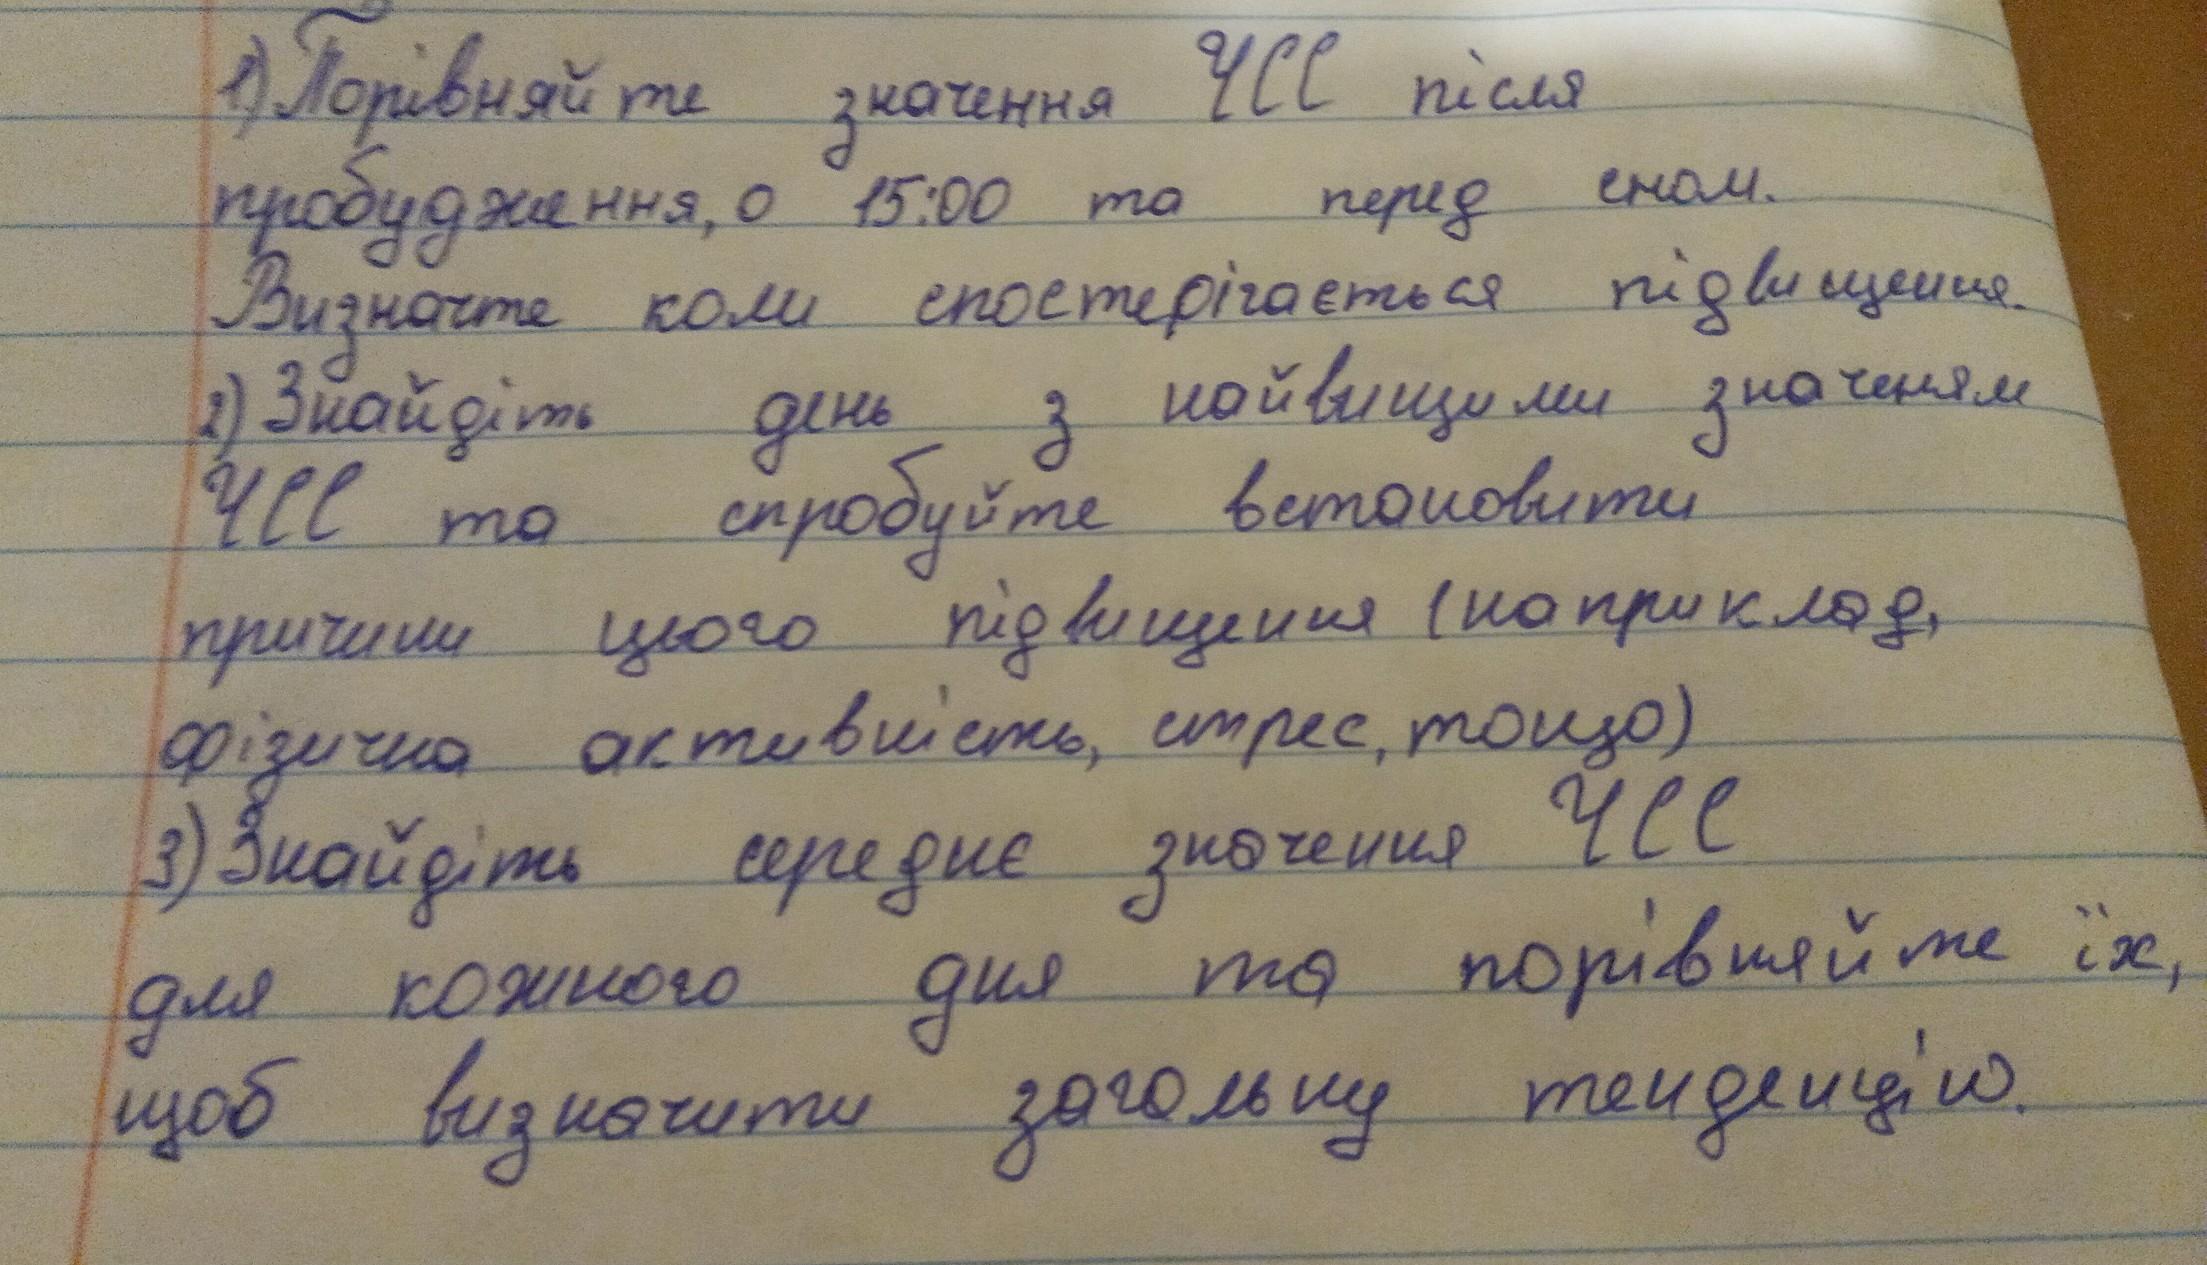 1) Порівняйте значення ЧСС після
пробудження, о 15:00 та перед сном.
Визначте коли спостерігається підвищення.
2) Знайдіть день з найвищими значеням
ЧСС та спробуйте встановити
причини цього підвищення (наприклад,
фізична активність, стрес, тощо)
3) Знайдіть середнє значення ЧСС
для кожного дня та порівняйте їх,
щоб визначити загальну тенденцію.